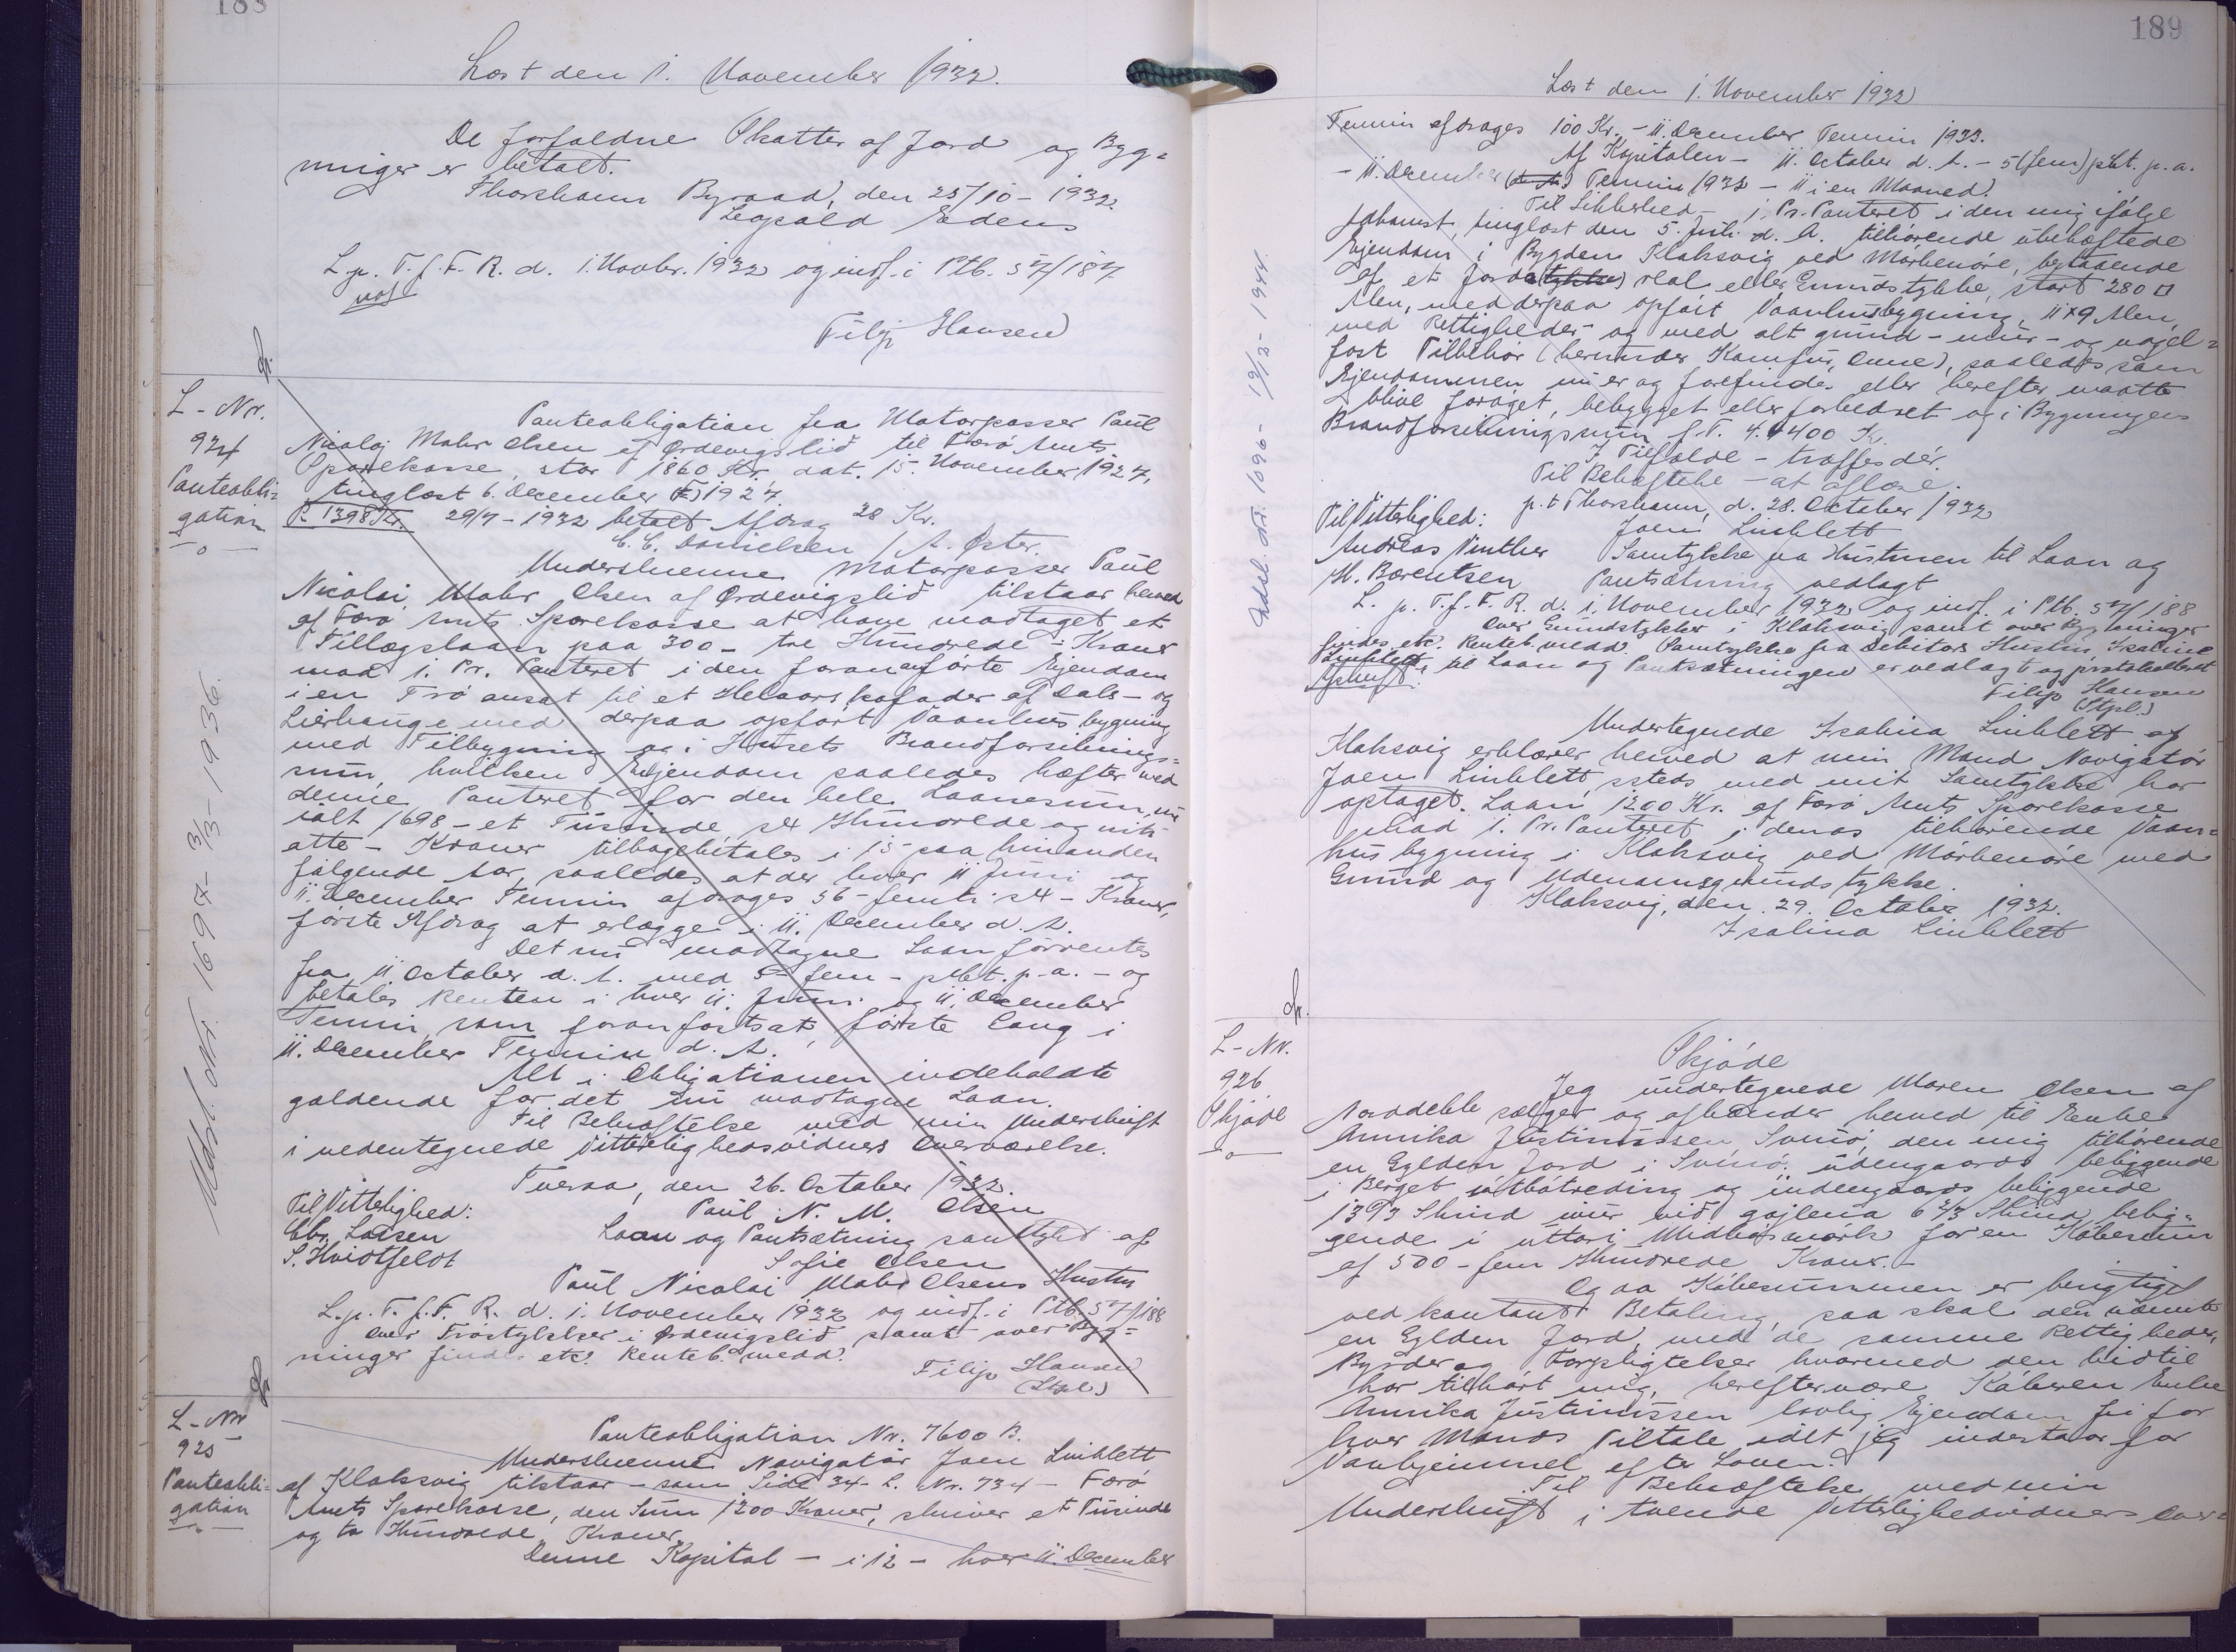 188
Læst den 1. November 1932.
De forfaldne Skatter af Jord og Byg=
ninger er betalt.
Thorshavn Byraad, den 25/10 - 1932.
Leopold Edens
L. p. T. f. F. R. d. 1. Novbr. 1932 og indf. i Ptb. 57/187
Filip Hansen
L - Nr.
924
Panteobli=
gation
Panteobligation fra Motorpasser Paul
Nicolaj Mohr Olsen af Ørdevigslid til Færø Amts
Sparekasse, stor 1860 Kr. dat. 15. November 1927,
tinglæst 6. December 1927.
R. 1398 Kr. 29/7 - 1932 betalt Afdrag 28 Kr.
C. C. Danielsen / A. Øster.
Underskrevne Motorpasser Paul
Nicolai Mohr Olsen af Ørdevigslid tilstaar herved
af Færø Amts Sparekasse at have modtaget et
Tillægslaan paa 300 - tre Hundrede - Kroner
mod 1. Pr. Panteret i den foranførte Ejendom
i en Trø ansat til et Helaarskofoder af Dals- og
Lierhauge med derpaa opført Vaanhusbygning
med Tilbygning og i Husets Brandforsikrings=
sum, hvilken Ejendom saaledes hæfter med
denne Panteret for den hele Laanesum, nu
ialt 1698 - et Tusinde, sex Hundrede og niti
otte - Kroner tilbagebetales i 15 paa hinanden
følgende Aar, saaledes at der hver 11 Juni og
11. December Termin afdrages 56 - femti sex - Kroner,
første Afdrag at erlægge i 11. December d. A.
Det nu modtagne Laan forrentes
fra 11. October d. A. med 5 - fem - pCt. p. a. - og
betales Renten i hver 11. Juni og 11. December
Termin som foran fastsat, første Gang i
11. December Termin d. A.
Alt i Obligationen indeholdte
gældende for det nu modtagne Laan.
Til Bekræftelse med min Underskrift
i nedentegnede Vitterlighedsvidners Overværelse.
Tveraa, den 26. October 1932.
Til Vitterlighed: Paul N. M. Olsen
Chr. Larsen Laan og Pantsætning samtykt af
S. Hvidtfeldt Sofie Olsen
Paul Nicolai Mohr Olsens Hustru
L. p. T. f. F. R. d. 1. November 1932 og indf. i Ptb. 57/188
Over Trøstykker i Ørdevigslid samt over Byg=
ninger findes etc. Renteb. medd.
Filip Hansen
(Stpl.)
Udsl. Nr. 1697 - 3/3 - 1936.
L - Nr.
925
Panteobli=
gation
Panteobligation Nr. 7600 B.
Underskrevne Navigatør Joen Linklett
af Klaksvig tilstaar - som Side 34 - L. Nr. 734 - Færø
Amts Sparekasse, den Sum 1200 Kroner, skriver et Tusinde
og to Hundrede Kroner
Denne Kapital - i 12 - hver 11. December
189
Læst den 1. November 1932
Termin afdrages 100 Kr. - 11. December Termin 1933.
Af Kapitalen - 11. October d. A. - 5 (fem) pCt. p. a.
- 11. December Termin 1932 - 11 i en Maaned.
Til Sikkerhed - 1. Pr. Panteret i den mig ifølge
Adkomst, tinglæst den 5. Juli d. A. tilhørende ubehæftede
Ejendom i Bygden Klaksvig ved Mørkenøre, bestaaende
af et Jord(stykke) real eller Grundstykke, stort 280 □
Alen, med derpaa opført Vaanhusbygning, 11 x 9 Alen,
med Rettigheder og med alt grund- mur- og nagel=
fast Tilbehør (herunder Komfur, Ovne), saaledes som
Ejendommen nu er og forefindes eller herefter maatte
blive forøget, bebygget eller forbedret og i Bygningens
Brandforsikringssum f. T. 4.400 Kr.
I Tilfælde - træffes dér.
Til Bekræftelse - at aflæse.
p. t. Thorshavn, d. 28. October 1932
Til Vitterlighed: Joen Linklett
Andreas Vinther Samtykke fra Hustruen til Laan og
M. Bærentsen Pantsætning vedlagt
L. p. T. f. F. R. d. 1. November 1932 og indf. i Ptb. 57/188
Over Grundstykker i Klaksvig samt over Bygninger
findes etc. Renteb. medd. Samtykke fra Debitors Hustru Isalina
Linklett til Laan og Pantsætningen er vedlagt og protokolleret
Afskrift. Filip Hansen
(Stpl.)
Undertegnede Isalina Linklett af
Klaksvig erklærer herved at min Mand Navigatør
Joen Linklett, ssteds med mit Samtykke har
optaget Laan 1200 Kr. af Færø Amts Sparekasse
mod 1. Pr. Panteret i denas tilhørende Vaan=
husbygning i Klaksvig ved Mørkenøre med
Grund og Udenomsgrundstykke.
Klaksvig, den 29. October 1932.
Isalina Linklett
Udsl. Nr. 1096 - 19/12 - 1944.
L - Nr.
926
Skjøde
Skjøde
Jeg undertegnede Maren Olsen af
Norddeble sælger og afhænder herved til Enke
Annika Justinussen Svinø, den mig tilhørende
en Gylden Jord i Svinø: udengaards beliggende
i Berget útbótreding og indengaards beliggende
af 500 - fem Hundrede Kroner.
Og da Købesummen er berigtiget
ved kontant Betaling, saa skal den nævnte
en Gylden Jord med de samme Rettigheder,
Byrder og Forpligtelser hvormed den hidtil
har tilhørt mig, herefter være Køberen Enke
Annika Justinussen lovlig Ejendom fri for
hver Mands Tiltale idet jeg indestaar for
Vanhjemmel efter Loven.
Til Bekræftelse med min
Underskrift i tvende Vitterlighedsvidners Over=